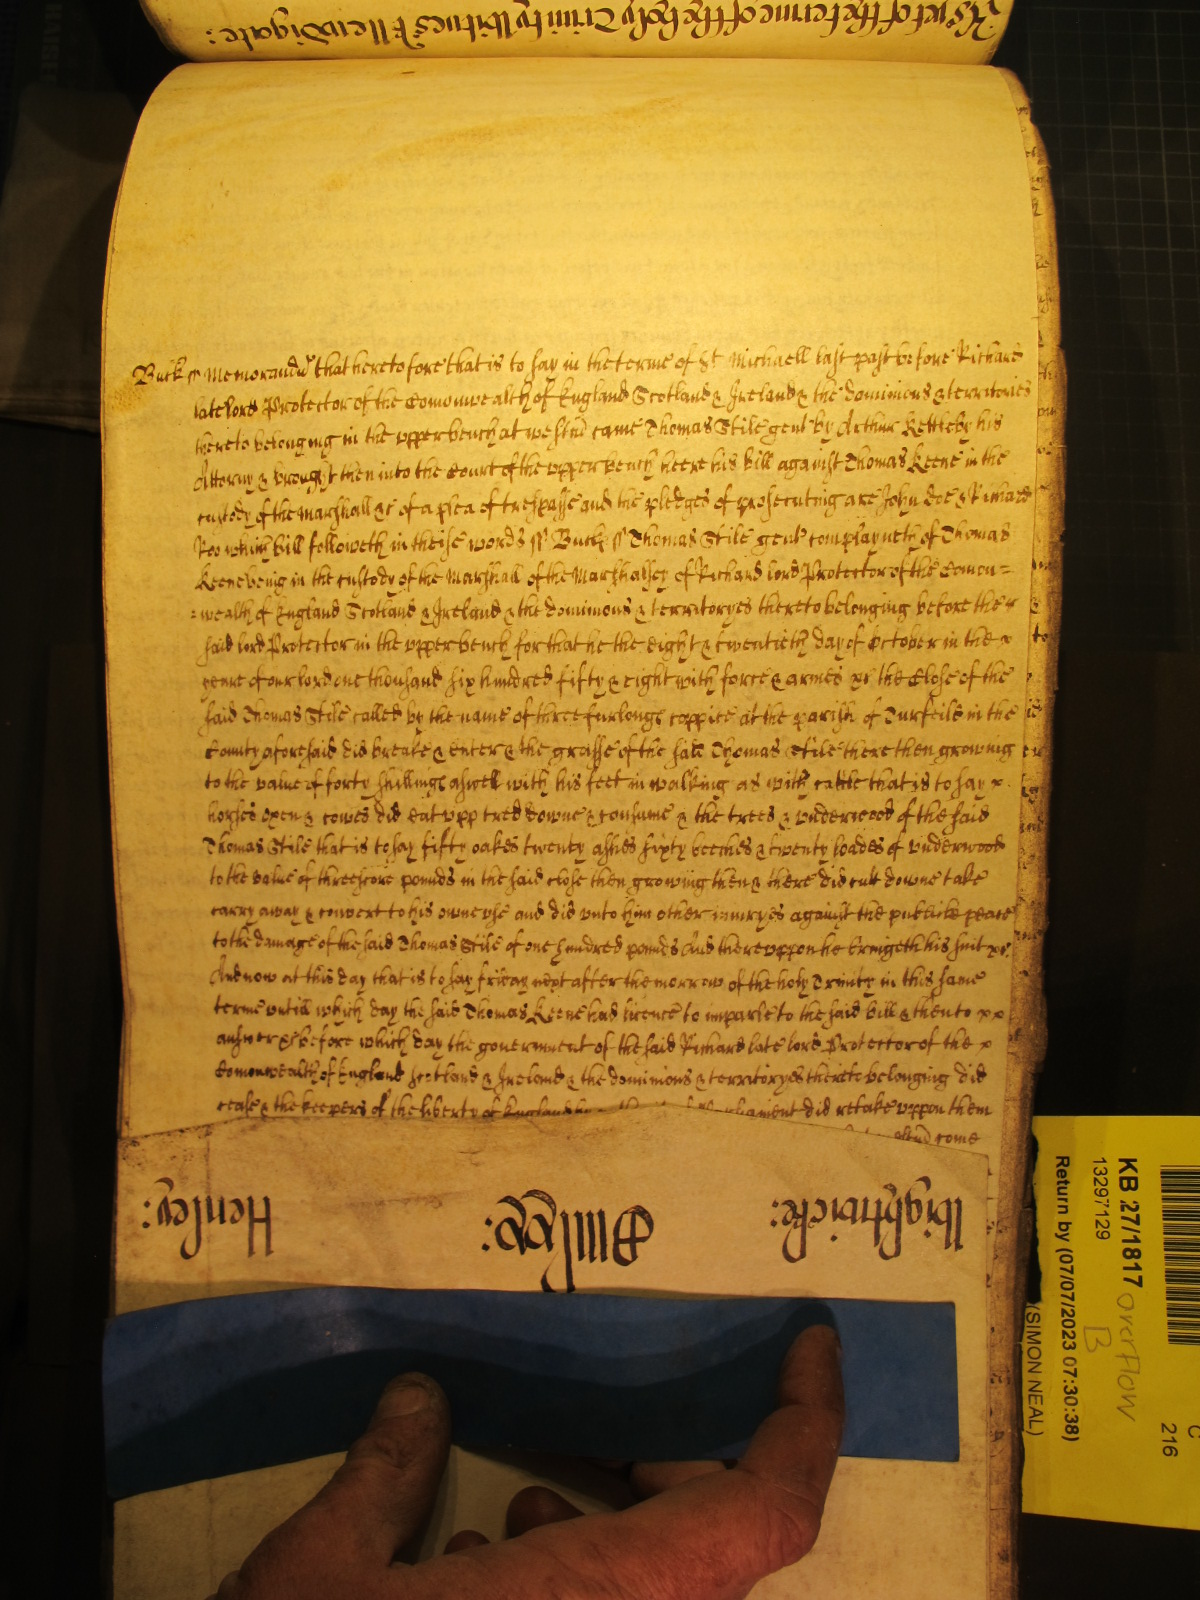 As yet of the terme of the holy Trinity Witnes R Newdigate:
Buck ss Memorandu that heretofore that is to say in the terme of St Michaell last past before Richard
late lord Protector of the Comonwealth of England Scotland & Ireland & the dominions & territories
thereto belonging in the upper bench at westm came Thomas Stile gent by Arthur Kettleby his
Attorny & brought then into the Court of the upper bench heere his bill against Thomas Keene in the
custody of the Marshall &c of a plea of trespasse and the pledges of prosecuting are John Doe & Richard
Roo which bill followeth in theise words ss Buck ss Thomas Stile gent complayneth of Thomas
Keene being in the custody of the Marshall of the Marshalsey of Richard lord Protector of the Comon=
=wealth of England Scotland & Ireland & the dominions & territoryes thereto belonging before the
said lord Protector in the upper bench for that he the eight & twentieth day of October in the x
yeare of our lord one thousand six hundred fifty & eight with force & armes &c the Close of the
said Thomas Stile called by the name of three furlongs coppice at the parish of Turfeild in the
County aforesaid did breake & enter & the grasse of the said Thomas Stile there then growing
to the value of forty shillings aswell with his feet in walking as with cattle that is to say x
horses oxen & cowes did eat upp tred downe & consume & the trees & underwood of the said
Thomas Stile that is to say fifty oakes twenty ashes sixty beeches & twenty loades of underwood
to the value of threescore pounds in the said close then growing then & there did cutt downe take
carry away & convert to his owne use and did unto him other iniuryes against the publick peace
to the damage of the said Thomas Stile of one hundred pounds And thereuppon he bringeth his suit &c
And now at this day that is to say friday next after the morrow of the holy Trinity in this same
terme untill which day the said Thomas Keene had licence to imparle to the said bill & then to x x
answer &c before which day the government of the said Richard late lord Protector of the x
Comonwealth of England Scotland & Ireland & the dominions & territoryes thereto belonging did
cease & the keepers of the liberty of England by parliament did retake uppon them
come
Wightwick:
Henley:
KB 27/1817
13297129
Return by (07/07/2023 07:30:38)
(SIMON NEAL)
overflow
B
C
216